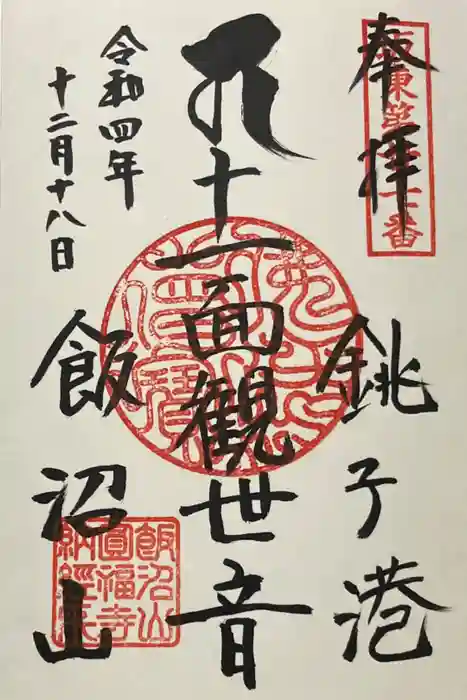 奉拝
坂東第廿七番
銚子港
十一面観世音
令和四年
十二月十八日
飯沼山
飯沼山
圓福寺
納経之印